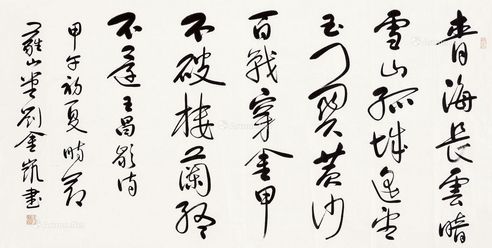 青海長雲暗
雪山孤城遥望
玉门關黄沙
百戰穿金甲
不破楼蘭終
不還王昌齡诗
甲午初夏時節
山堂刘金凯書